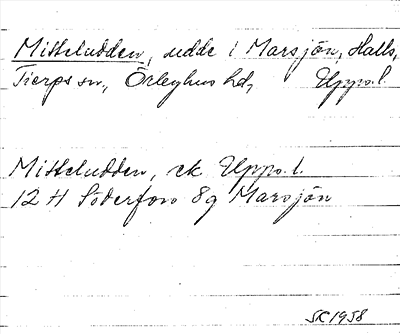 Mitteludden, udde i Marsjön, Halls,
Tierps sn., Örbyhus hd, Upps.l.
Mitteludden, ek Upps.l.
12 H Söderfors 8g Marsjön
SK 1958